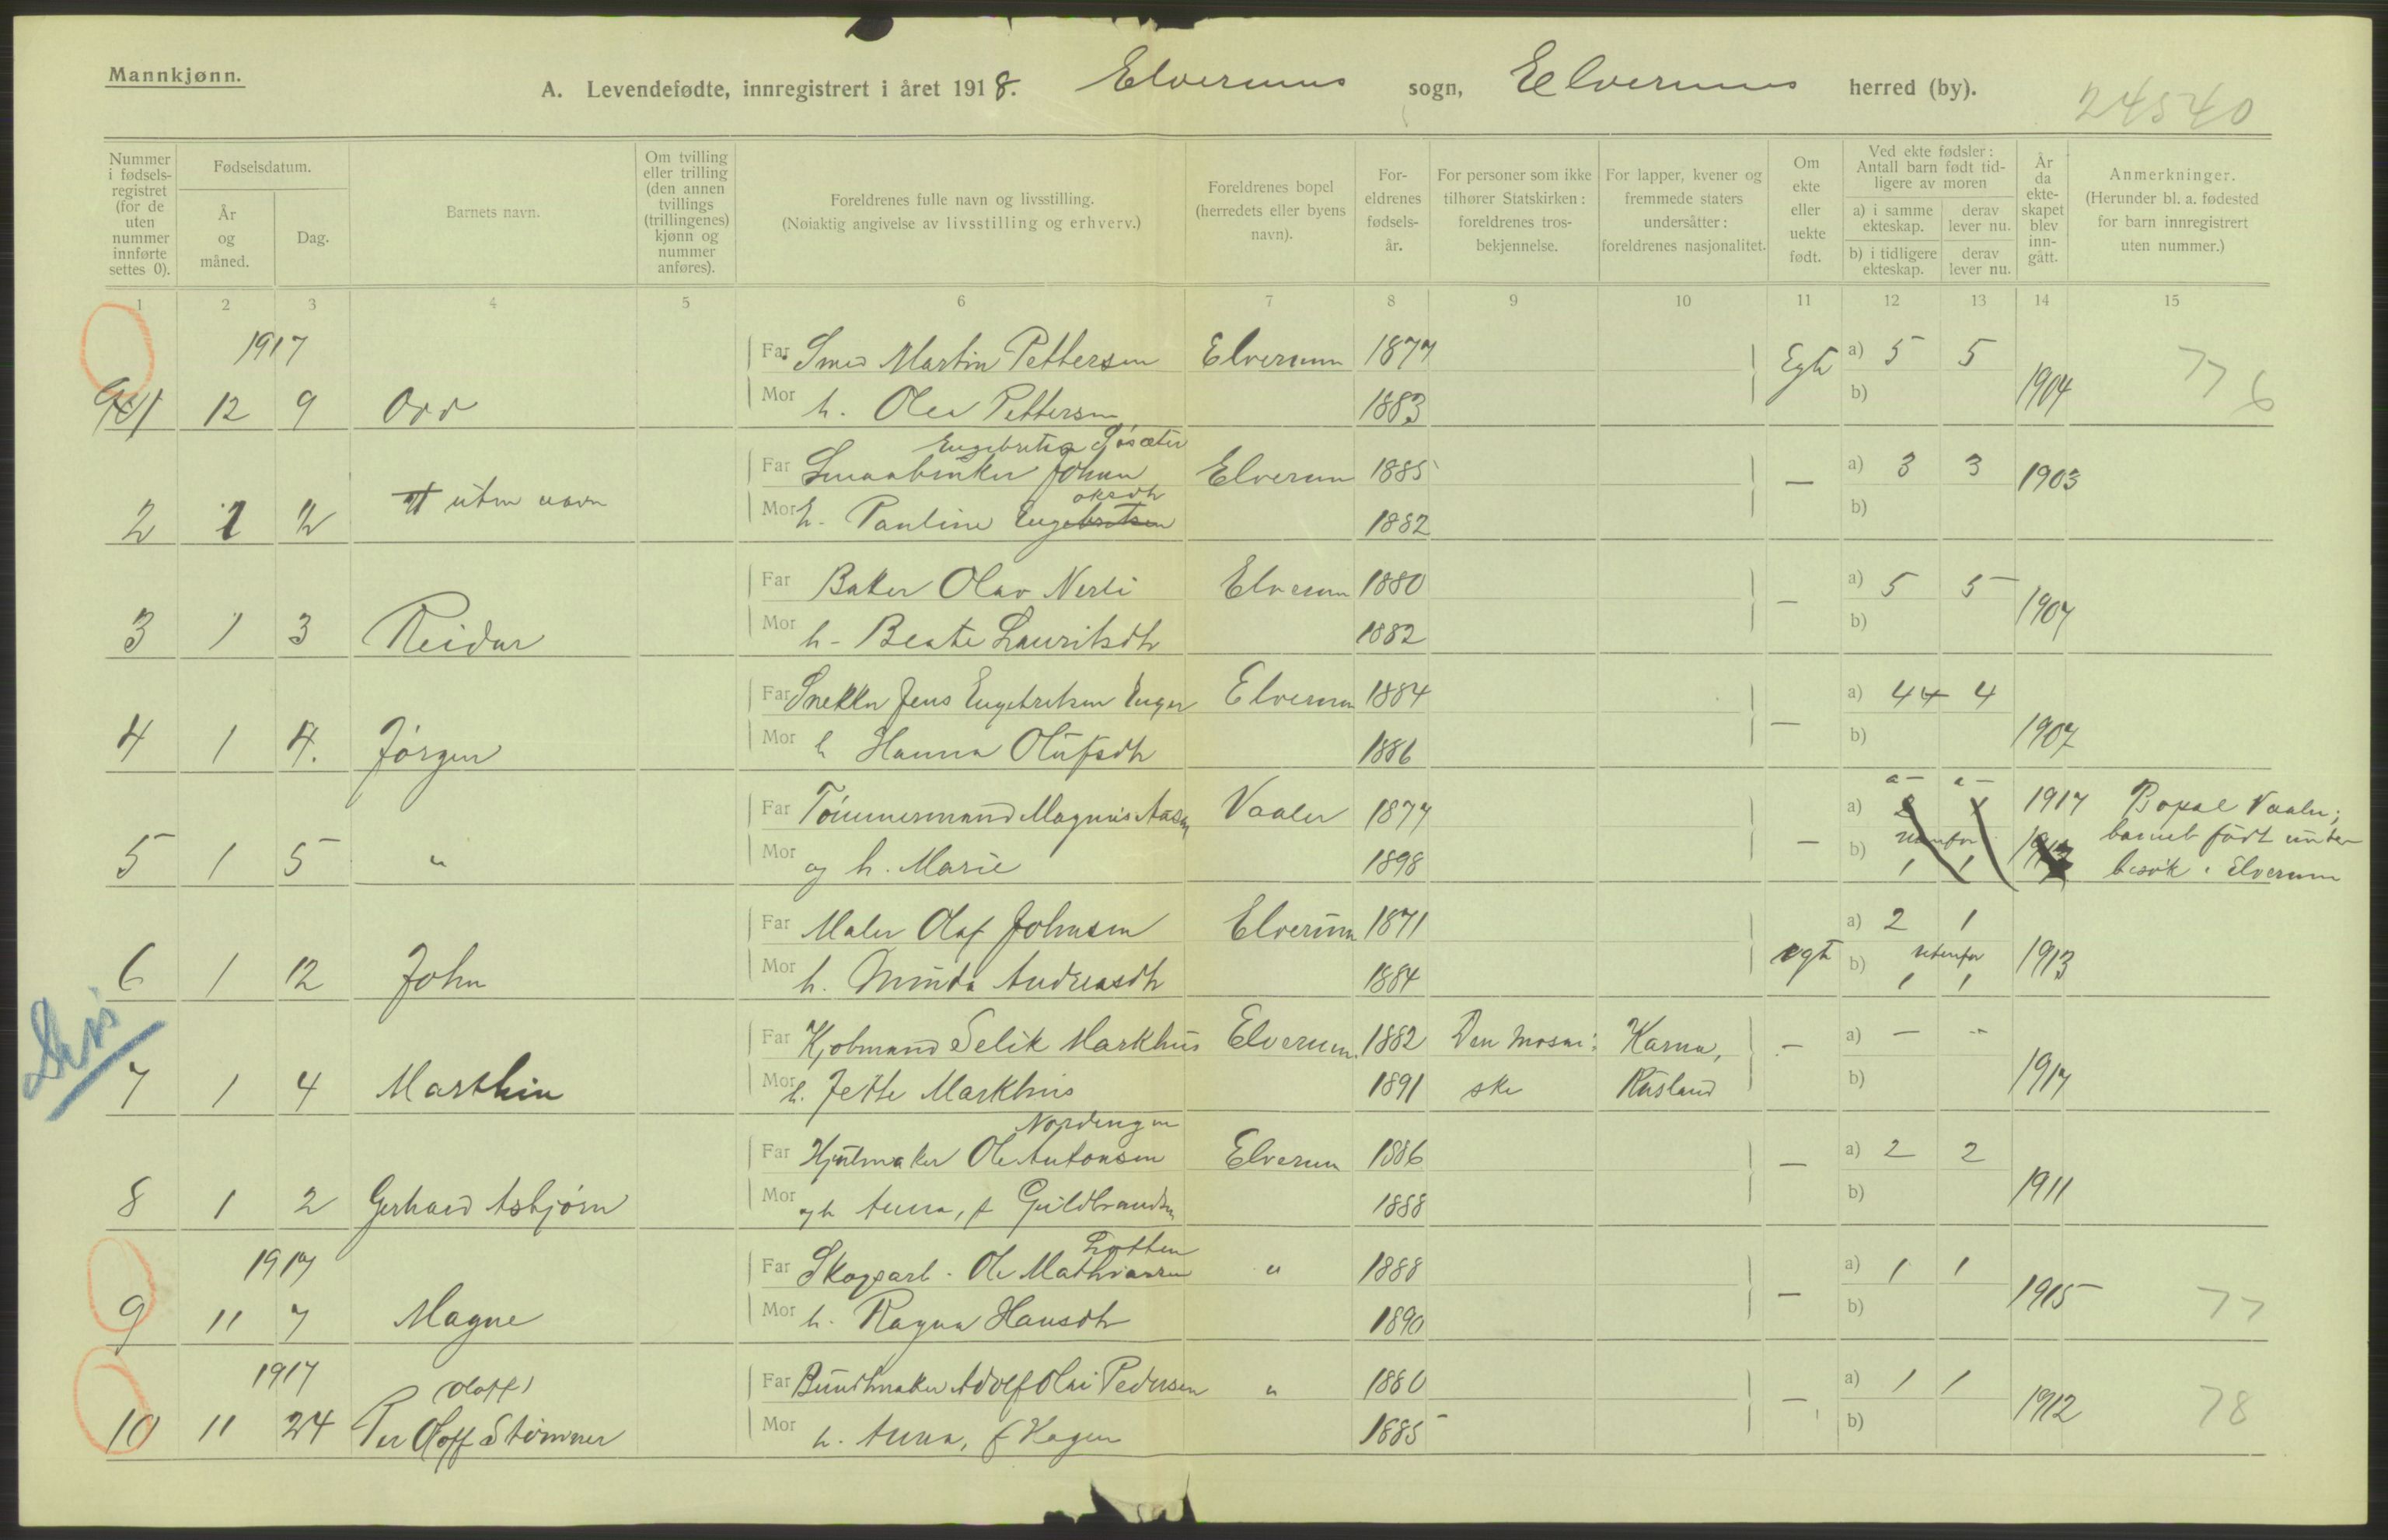 Mannkjønn.
A. Levendefødte, innregistrert i året 1918. Elverums sogn, Elverums herred (by).
24540
Nummer i fødsels-registret (for de uten nummer innførte settes 0).
Fødselsdatum.
År og måned.
Dag.
Barnets navn.
Om tvilling eller trilling (den annen tvillings (trillingenes) kjønn og nummer anføres).
Foreldrenes fulle navn og livsstilling.
(Nøiaktig angivelse av livsstilling og erhverv.)
Foreldrenes bopel (herredets eller byens navn).
For-eldrenes fødsels-år.
For personer som ikke tilhører Statskirken: foreldrenes tros-bekjennelse.
For lapper, kvener og fremmede staters undersåtter: foreldrenes nasjonalitet.
Om ekte eller uekte født.
Ved ekte fødsler: Antall barn født tid-ligere av moren
a) i samme ekteskap. derav lever nu.
b) i tidligere ekteskap. derav lever nu.
År da ekte-skapet blev inn-gått.
Anmerkninger.
(Herunder bl. a. fødested for barn innregistrert uten nummer.)
1 2 3 4 5 6 7 8 9 10 11 12 13 14 15
1917 Far Smed Martin Pettersen Elverum 1877 Egte a) 5 5
12 9 Odd Mor h. Olea Pettersen 1883 b) 1904 776
Engebretsen
Far Smaabruker Johan Elverum 1885 a) 3 3 1903
2 1 2 uten navn Mor h. Pauline Engebretsen 1882 — b)
Far Baker Olav Nerli Elverum 1880 a) 5 5
3 1 3 Reidar Mor h. Beate Lauritsdtr 1882 — b) 1907
Far Snekker Jens Engebretsen Enger Elverum 1884 a) 4 4 4
4 1 4. Jörgen Mor h Hanna Olufsdtr 1886 — b) 1907
Far Tömmermand Magnus Aasen Vaaler 1877 a) 1917 Bopæl Vaaler;
barnet födt under
5 1 5 " Mor og h. Marie 1898 — b) 1 1 besök i Elverum
Far Maler Olaf Johnsen Elverum 1871 a) 2 1
6 1 12 John Mor h. Minda Andreasdtr 1884 egte b) utenfor 1 1 1913
Far Kjøbmand Selik Markhus Elverum. 1882 Den mosai- Karna, a) — —
7 1 4 Marthin Mor h. Jette Markhus 1891 ske Rusland — b) 1917
Nordengen
Far Hjulmaker Ole Antonsen Elverum 1886 a) 2 2
8 1 2 Gerhard Asbjørn Mor og h Anna, f Guldbrandsen 1888 — b) 1911
1917 Far Skogsarb. Ole Mathisen " 1888 a) 1 1
9 11 7 Magne Mor h. Ragna Hansdtr 1890 — b) 1915 77
1917 (Olaff) Far Buntmaker Adolf Olai Pedersen " 1880 a) 1 1
10 11 24 Per Oloff Störmer Mor h. Anna, f Hagen 1885 — b) 1912 78